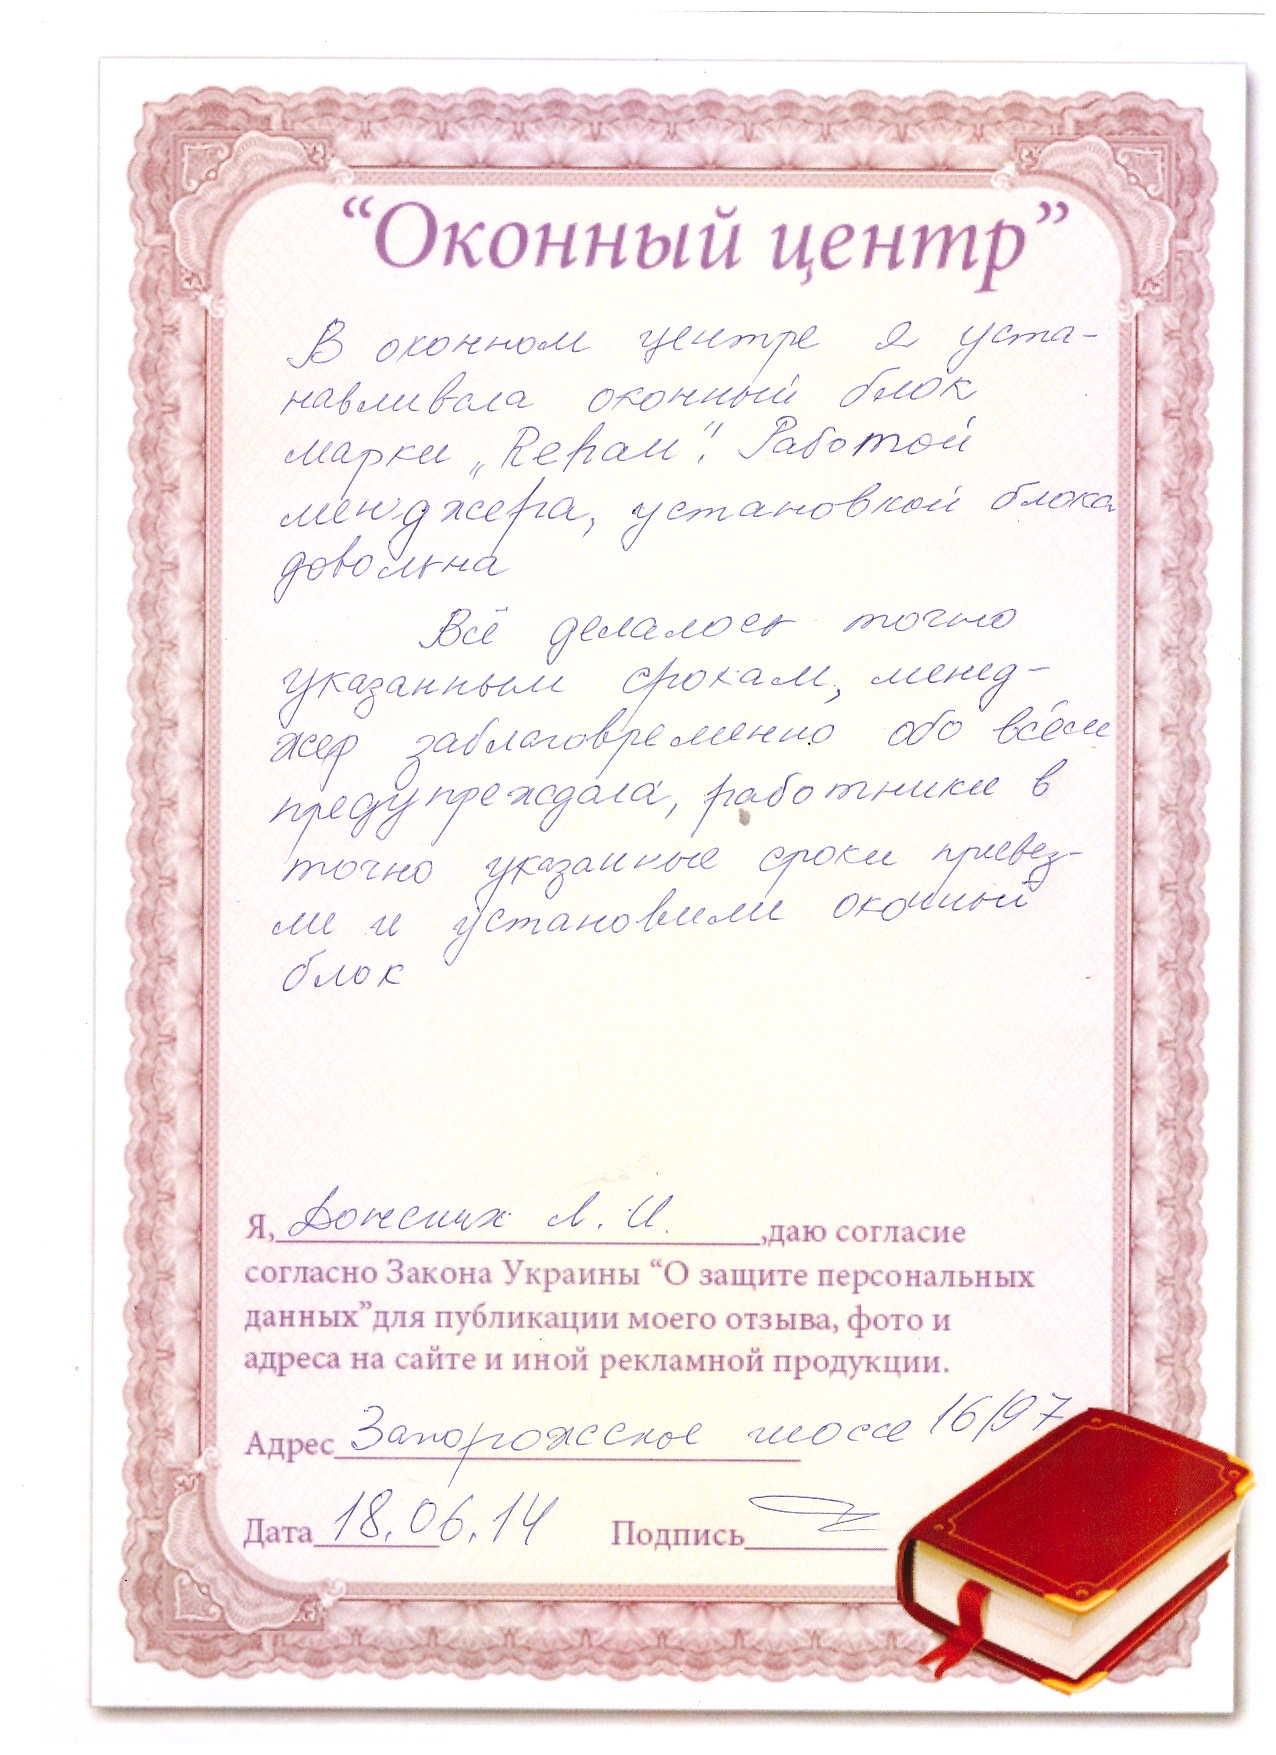 “Оконный центр”
В оконном центре я уста-
навливала оконный блок
марки „Rehau”. Работой
менджера, установкой блока
довольна
Всё делалось точно
указанным срокам, менед-
жер заблаговременно обо всём
предупреждала, работники в
точно указанные сроки привез-
ли и установили оконный
блок
Я, Л. И. ,даю согласие
согласно Закона Украины “О защите персональных
данных”для публикации моего отзыва, фото и
адреса на сайте и иной рекламной продукции.
Адрес Запорожское шоссе 16/97
Дата 18.06.14 Подпись